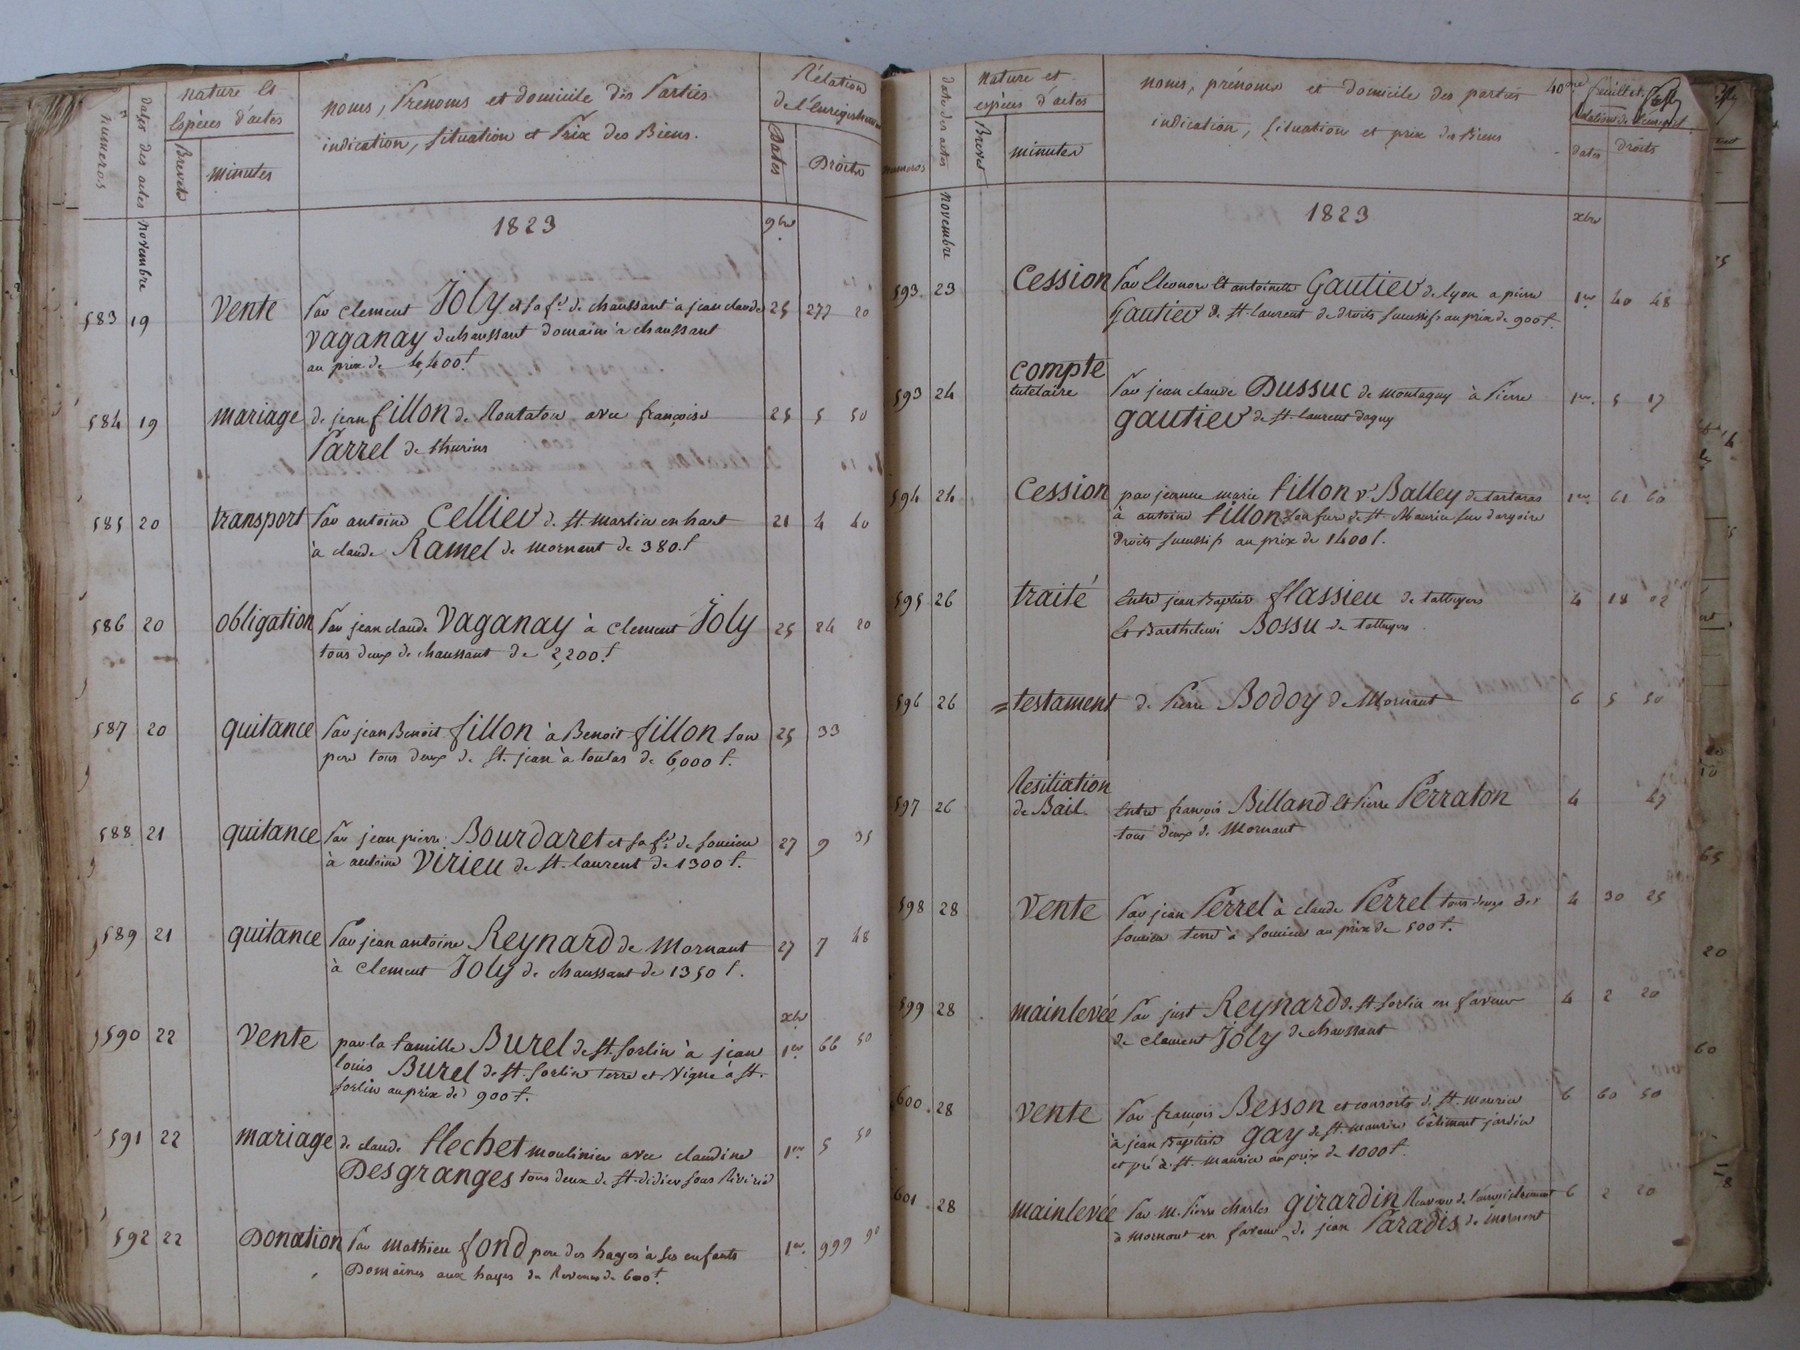 numeros
dates des actes
nature et
Espèces d'actes
Brevets
minutes
noms, Prenoms et domicile des Parties
indication, situation et Prix des Biens.
Rélation
de l'Enregistrement
Dates
Droits
novembre
1823
9bre
583 19 vente Par Clement Joly et sa fe de chaussant à jean claude 25 277 20
vaganay de chaussant domaine à chaussant
au prix de 4,400f
584 19 mariage de jean fillon de Rontalon avec françoise 25 5 50
Parrel de thurins
585 20 transport Par antoine Cellier de st martin en haut 21 4 40
à claude Ramel de Mornant de 380.f
586 20 obligation Par jean claude Vaganay à Clement Joly 25 24 20
tous deux de chaussant de 2,200f
587 20 quitance Par jean Benoit fillon à Benoit fillon son 25 33
pere tous deux de st. jean à toulas de 6,000 f.
588 21 quitance Par jean pierre Bourdaret et sa fe de soucieu 27 9 35
à antoine Virieu de st. laurent de 1300 f.
589 21 quitance Par jean antoine Reynard de Mornant 27 7 48
à Clement Joly de chaussant de 1350 f.
xbre
590 22 vente par la famille Burel de st. sorlin à jean 1er 66 50
louis Burel de st. sorlin terre et vigne à st.
sorlin au prix de 900 f.
591 22 mariage de claude flechet moulinier avec claudine 1er 5 50
Desgranges tous deux de st. didier sous Riverie
592 22 Donation Par Mathieu fond pere des hayes à ses enfants 1er. 999 90
Domaines aux hayes de Revenu de 600f.
numeros
date des actes
nature et
espèces d'actes
Brevet
minutes
noms, prénoms et domicile des parties
indication, situation et prix des Biens
40me feuillet.
Relation de l'enregist.
dates
droits
novembre
1823
xbre
593 23 Cession Par Eleonore et antoinette Gautier de lyon a pierre 1er 40 48
Gautier de st. laurent de droits successifs au prix de 900f.
593 24 compte
tutelaire Par jean claude Dussuc de montagny à Pierre 1er. 5 17
gautier de st. laurent dagny
594 24 Cession par jeanne marie fillon ve Balley de tartaras 1er 61 60
à antoine fillon son frere de st. Maurice sur dargoire
droits successifs au prix de 1400 f.
595 26 traité Entre jean Baptiste flassieu de taluyers 4 18 02
et Barthelemi Bossu de taluyers
596 26 = testament de Pierre Bodoy de Mornant 6 5 50
597 26 Resiliation
de Bail. Entre françois Billand et Pierre Perraton 4 47
tous deux de Mornant
598 28 vente Par jean Perrel à claude Perrel tous deux de 4 30 25
soucieu terre à soucieu au prix de 500 f.
599 28 mainlevée Par just Reynard de st sorlin en faveur 4 2 20
de clement Joly de chaussant
600 28 vente Par françois Besson et consorts de st. maurice 6 60 50
à jean Baptiste gay de st. maurice bâtiment jardin
et pré à st. maurice au prix de 1000 f.
601 28 mainlevée Par M. Pierre charles girardin Receveur de l'enregistrement 6 2 20
à mornant en faveur de jean Paradis de mornant